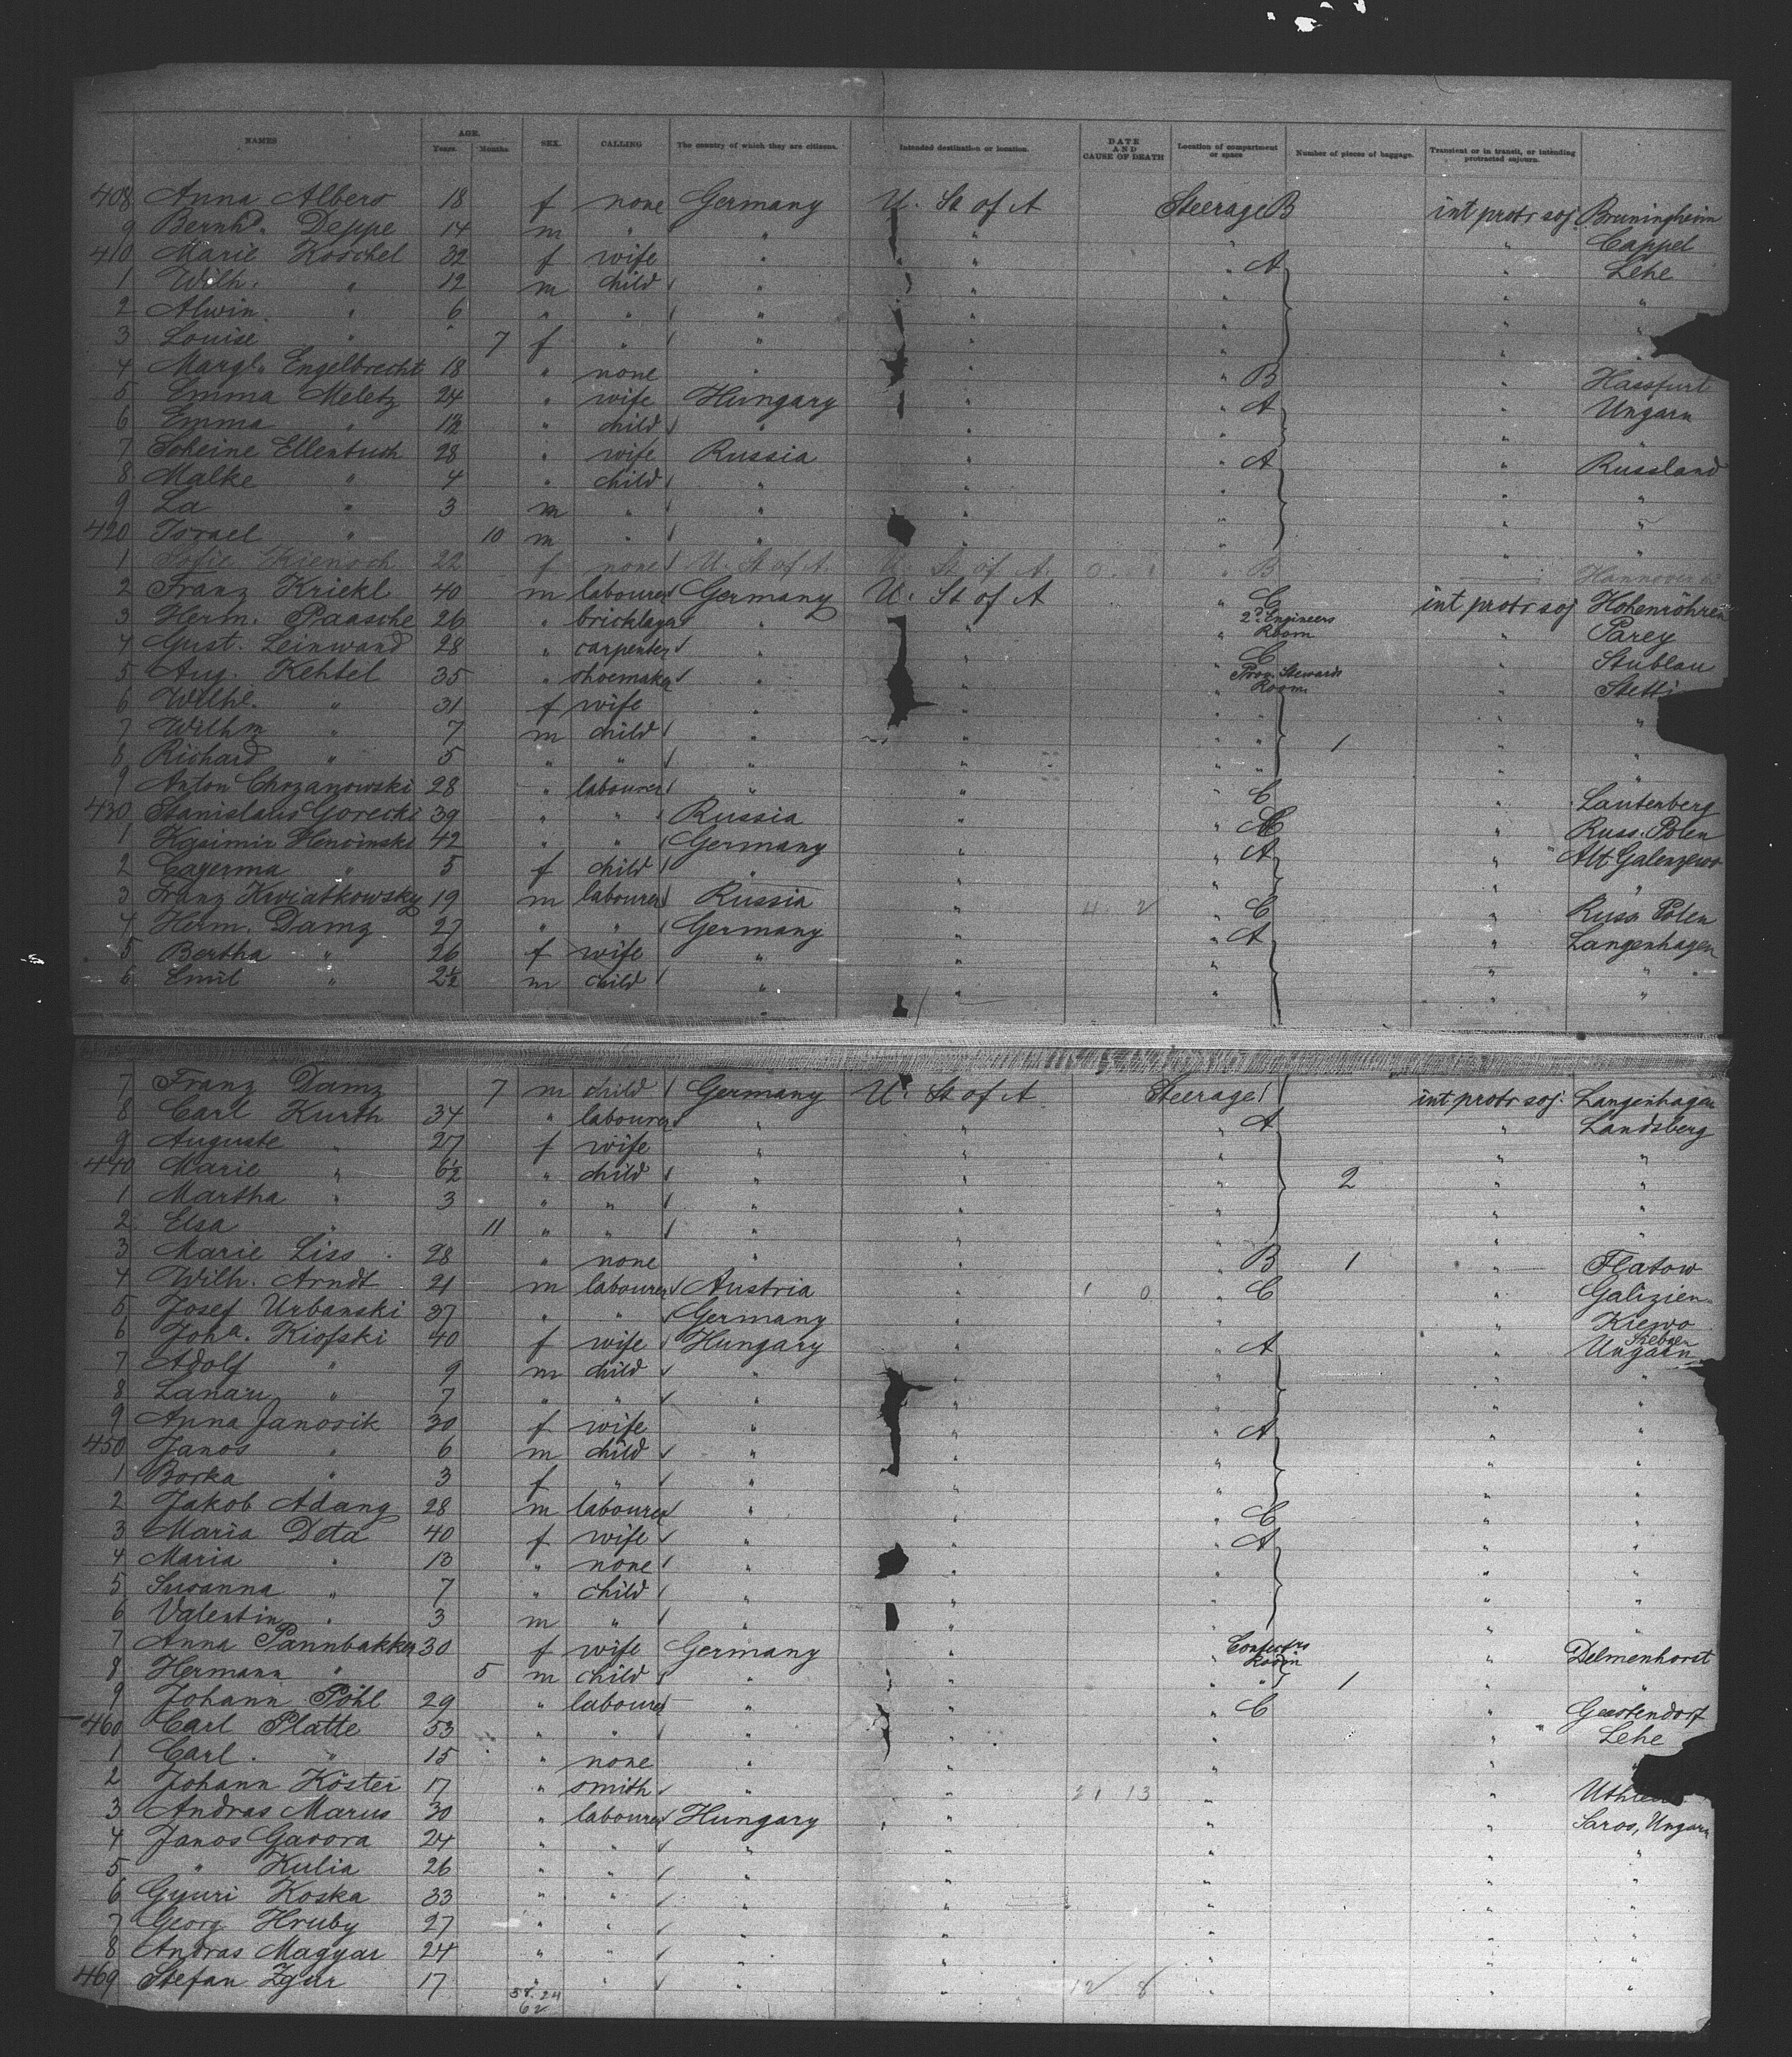 NAMES AGE. Years. Months SEX. CALLING The country of which they are citizens. Intended destination or location. DATE AND CAUSE OF DEATH Location of compartment or space Number of pieces of baggage. Transient or in transit, or intending protracted sojourn.
408 Anna Albers 18 f none Germany U. St of A Steerage B int protr soj. Bruningheim
9 Bernhd. Deppe 14 m " " " " " Cappel
410 Marie Koschel 32 f wife " " " A " Lehe
1 Wilh. " 12 m child " " " " "
2 Alwin " 6 " " " " " " "
3 Louise " 7 f " " " " " "
4 Margt. Engelbrecht 18 " none " " " B " Hassfurt
5 Emma Meletz 24 " wife Hungary " " A " Ungarn
6 Emma " 1½ " child " " " " "
7 Scheine Ellenbuch 28 " wife Russia " " A " Russland
8 Malke " 4 " child " " " " "
9 La " 3 m " " " " " "
420 Israel " 10 m " " " " " "
1 Sofie Kienoch 22 f none U. St of A. U. St of A. " B Hannover
2 Franz Kriekl 40 m labourer Germany U. St of A " C int protr soj Hohenröhren
3 Herm. Paasche 26 " bricklayer " " " 2d. Engineers Room " Parey
4 Gust. Leinwand 28 " carpenter " " " C " Stüblau
5 Aug. Kehtel 35 " shoemaker " " " Prov. Stewards Room. " Stetti
6 Wilhe. " 31 f wife " " " " " "
7 Wilhm " 7 m child " " " " 1 " "
8 Richard " 5 " " " " " " " "
9 Anton Chozanowski 28 " labourer " " " C " Lauterberg
430 Stanislaus Gorecki 39 " " Russia " " C " Russ. Polen
1 Kasimir Henoinski 42 " " Germany " " A " Alt Galenzewo
2 Cagerma " 5 f child " " " " "
3 Franz Kwiatkowsky 19 m labourer Russia " 4 2 " C " Russ Polen
4 Herm. Damz 27 " " Germany " " A " Langenhagen
5 Bertha " 26 f wife " " " " "
6 Emil " 2½ m child " " " " "
7 Franz Damz 7 m child Germany U. St of A Steerage int protr soj. Langenhagen
8 Carl Kurth 34 " labourer " " " A " Landsberg
9 Auguste " 27 f wife " " " " "
440 Marie " 6½ " child " " " 2 " "
1 Martha " 3 " " " " " " "
2 Elsa " 11 " " " " " " "
3 Marie Liss 28 " none " " " B 1 " Flatow
4 Wilh. Arndt 21 m labourer Austria " 1 0 " C " Galizien
5 Josef Urbanski 37 " " Germany " " " Kiewo
6 Joha. Kiofski 40 f wife Hungary " " A " Ungarn
7 Adolf " 9 m child " " " " "
8 Lanari " 7 " " " " " " "
9 Anna Janosik 30 f wife " " " A " "
450 Janos " 6 m child " " " " "
1 Borka " 3 f " " " " " "
2 Jakob Adang 28 m labourer " " " C " "
3 Maria Deta 40 f wife " " " A " "
4 Maria " 13 " none " " " " "
5 Susanna " 7 " child " " " " "
6 Valentin " 3 m " " " " " "
7 Anna Pannbakker 30 f wife Germany " " Confectrs Room " Delmenhorst
8 Hermann " 5 m child " " " " 1 " "
9 Johann Pöhl 29 " labourer " " " C " Geestendorf
460 Carl Platte 53 " " " " " " Lehe
1 Carl " 15 " none " " " " "
2 Johann Köster 17 " smith " " 21 13 " "
3 Andras Marus 30 " labourer Hungary " " " Saros, Ungarn
4 Janos Gavora 24 " " " " " " "
5 " Kulia 26 " " " " " " "
6 Gyuri Koska 33 " " " " " " "
7 Georg Hruby 27 " " " " " " "
8 Andras Magyar 24 " " " " " " "
469 Stefan Zgur 17 " " " " 12 8 " " "
58. 24
62